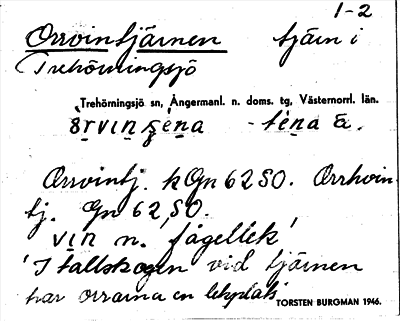 1-2
Orrvintjärnen tjärn i
Trehörningsjö
Trehörningsjö sn, Ångermanl. n. doms. tg, Västernorrl. län.
Orrvintj. kGn 62 SO. Orrhvin-
tj. Gn 62, SO.
vin n. 'fågellek'
'I tallskogen vid tjärnen
har orrarna en lekplats'
TORSTEN BURGMAN 1946.